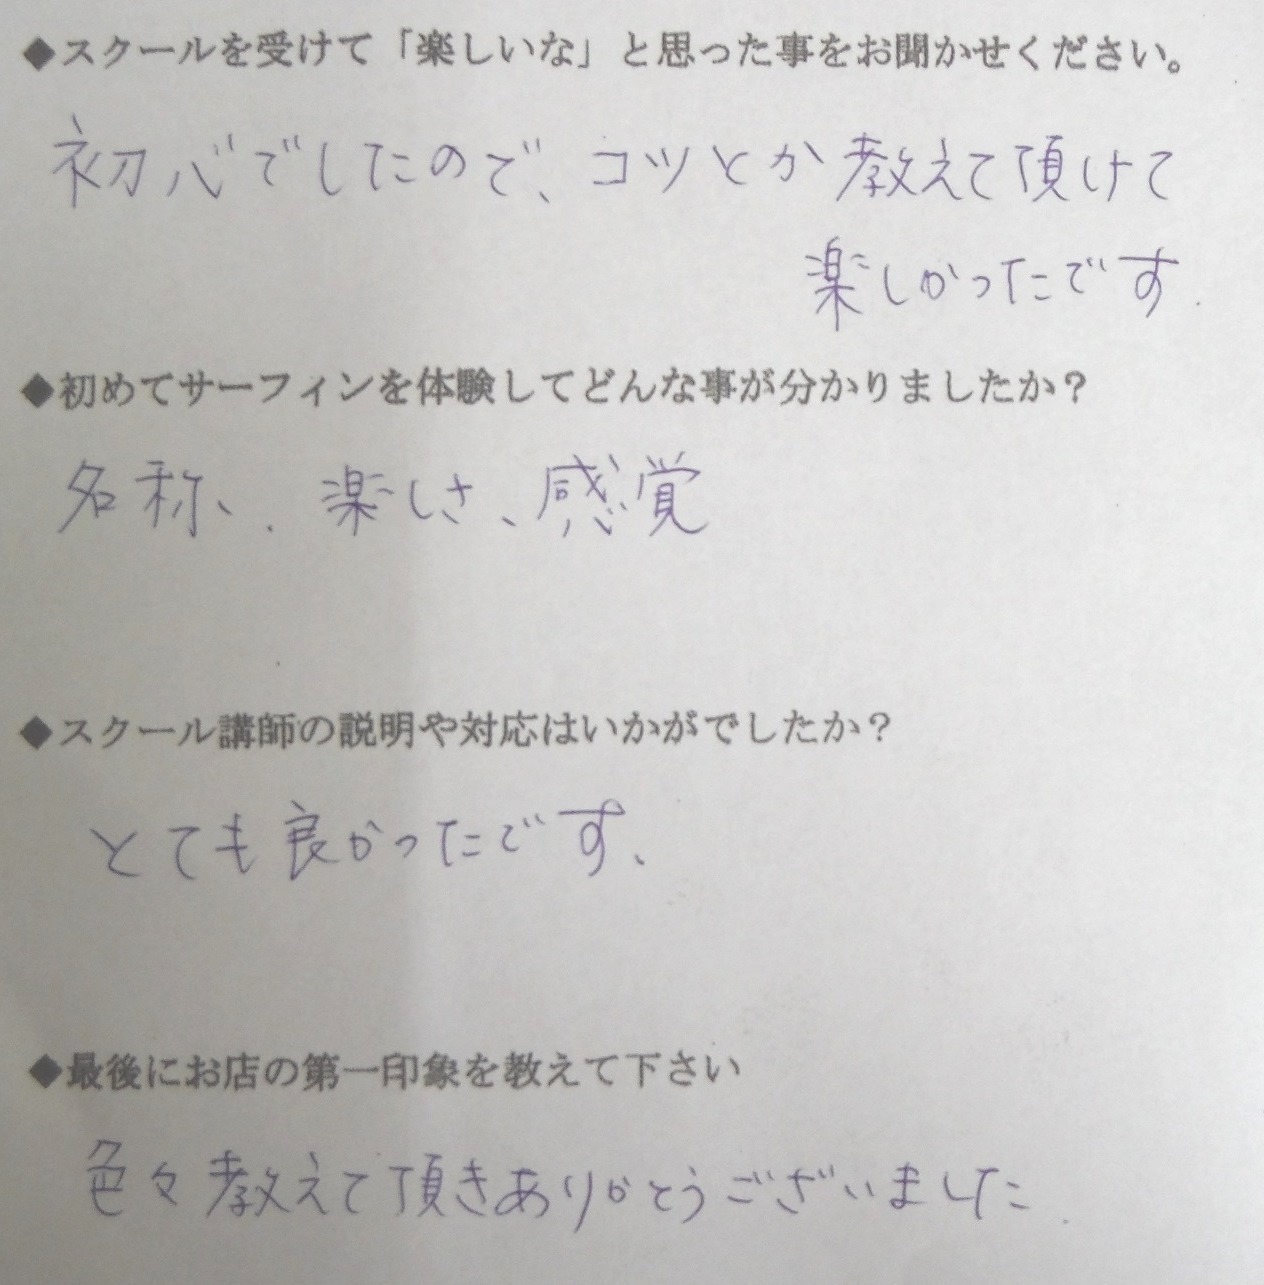 ◆スクールを受けて「楽しいな」と思った事をお聞かせください。
初心でしたので、コツとか教えて頂けて
楽しかったです.
◆初めてサーフィンを体験してどんな事が分かりましたか？
名称、. 楽しさ、感覚
◆スクール講師の説明や対応はいかがでしたか？
とても良かったです、
◆最後にお店の第一印象を教えて下さい
色々教えて頂きありがとうございました.